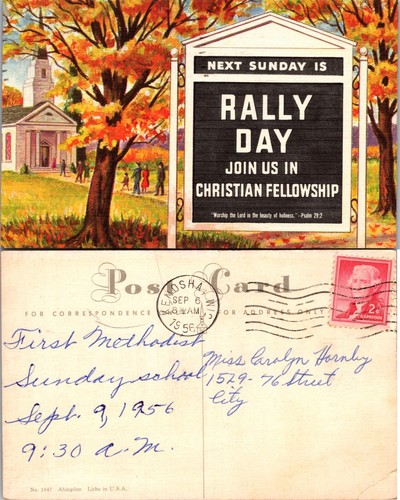 NEXT SUNDAY IS
RALLY
DAY
JOIN US IN
CHRISTIAN FELLOWSHIP
"Worship the Lord in the beauty of holiness." -Psalm 29:2
Post Card
FOR CORRESPONDENCE FOR ADDRESS ONLY
KENOSHA, WIS.
SEP 6
AM
1956
2¢
First Methodist
Sunday school
Sept. 9, 1956
9:30 A.M.
Miss Carolyn Hornby
1529-76 Street
City
No. 1447 Abingdon Litho in U.S.A.